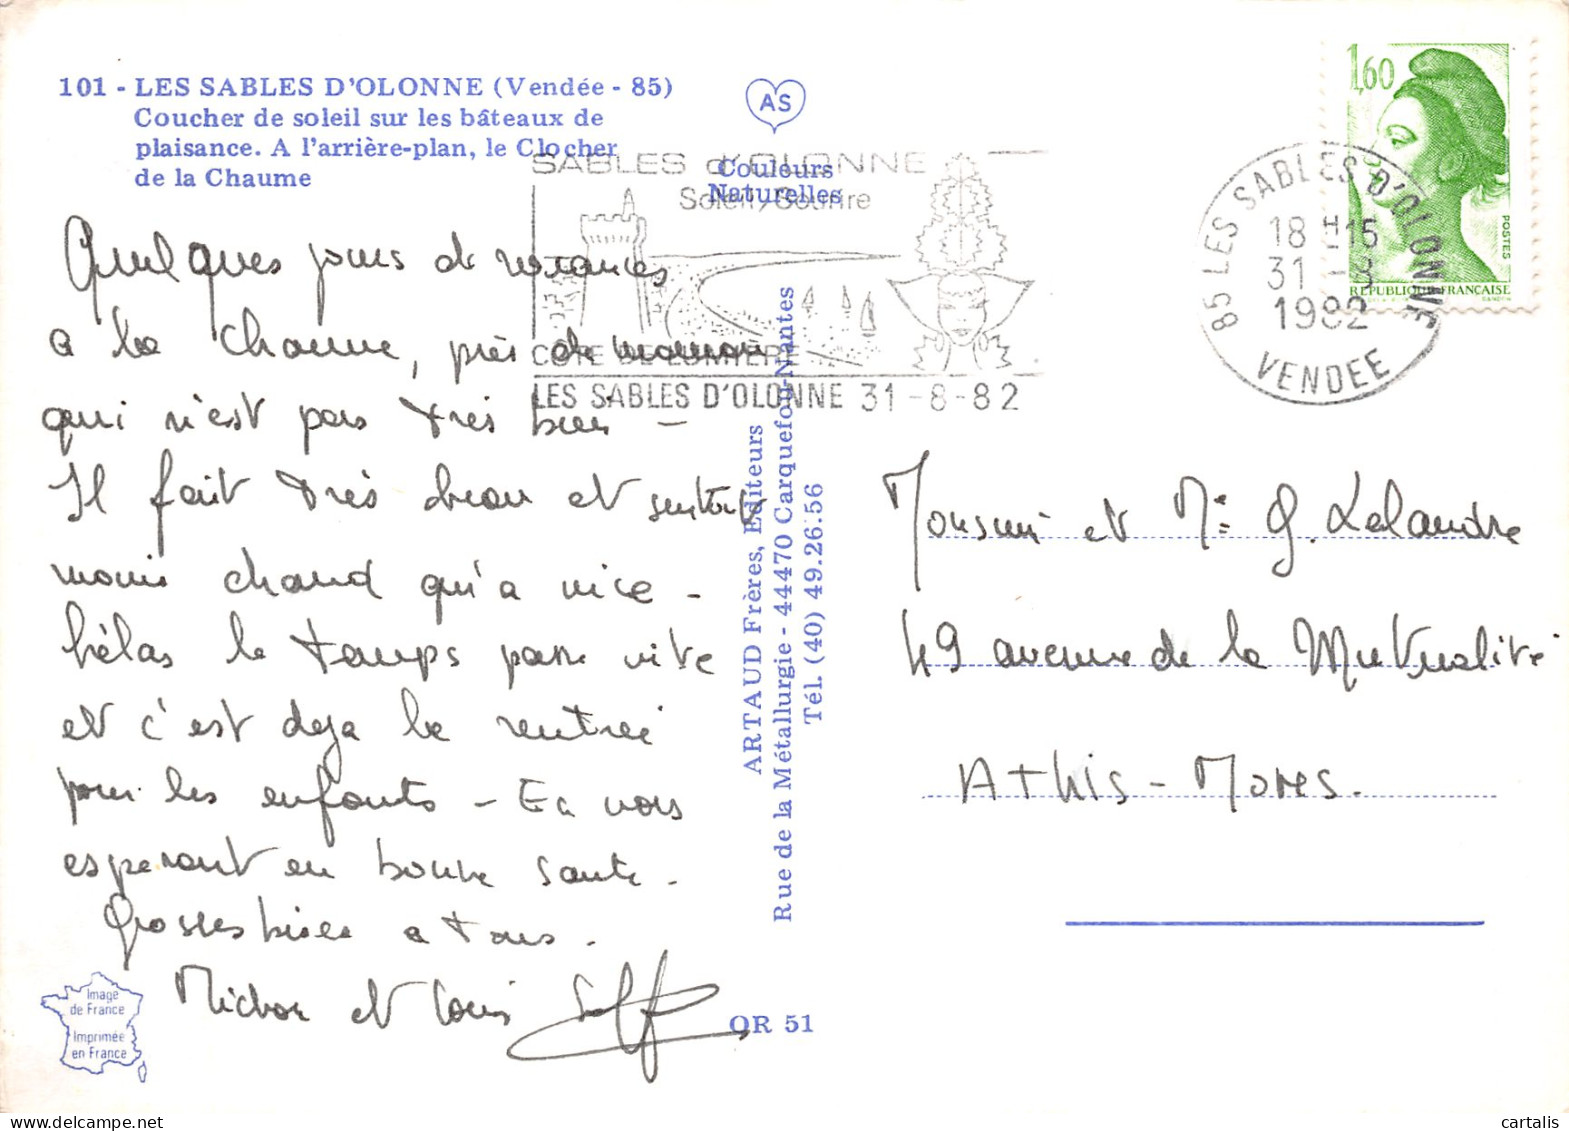 101 - LES SABLES D'OLONNE (Vendée - 85)
Coucher de soleil sur les bâteaux de
plaisance. A l'arrière-plan, le Clocher
de la Chaume
AS
Couleurs
Naturelles
SABLES d'OLONNE
Soleil, Sourire
COTE DE LUMIERE
LES SABLES D'OLONNE 31-8-82
85 LES SABLES D'OLONNE
18 H 15
31 - 8
1982
VENDEE
1,60
POSTES
REPUBLIQUE FRANCAISE
GANDON
Quelques jours de vacances
a la Chaume, près de maman
qui n'est pas très bien -
Il fait très beau et surtout
moins chaud qu'a nice -
hélas le temps passe vite
et c'est deja la rentrée
pour les enfants - En vous
esperant en bonne sante -
Grosses bises a tous.
et Louis
ARTAUD Frères, Editeurs
Rue de la Métallurgie - 44470 Carquefou-Nantes
Tél. (40) 49.26.56
Monsieur et Me G. Lalandre
49 avenue de la Mutualité
Athis-Mons.
Image
de France
Imprimée
en France
OR 51
cartalis